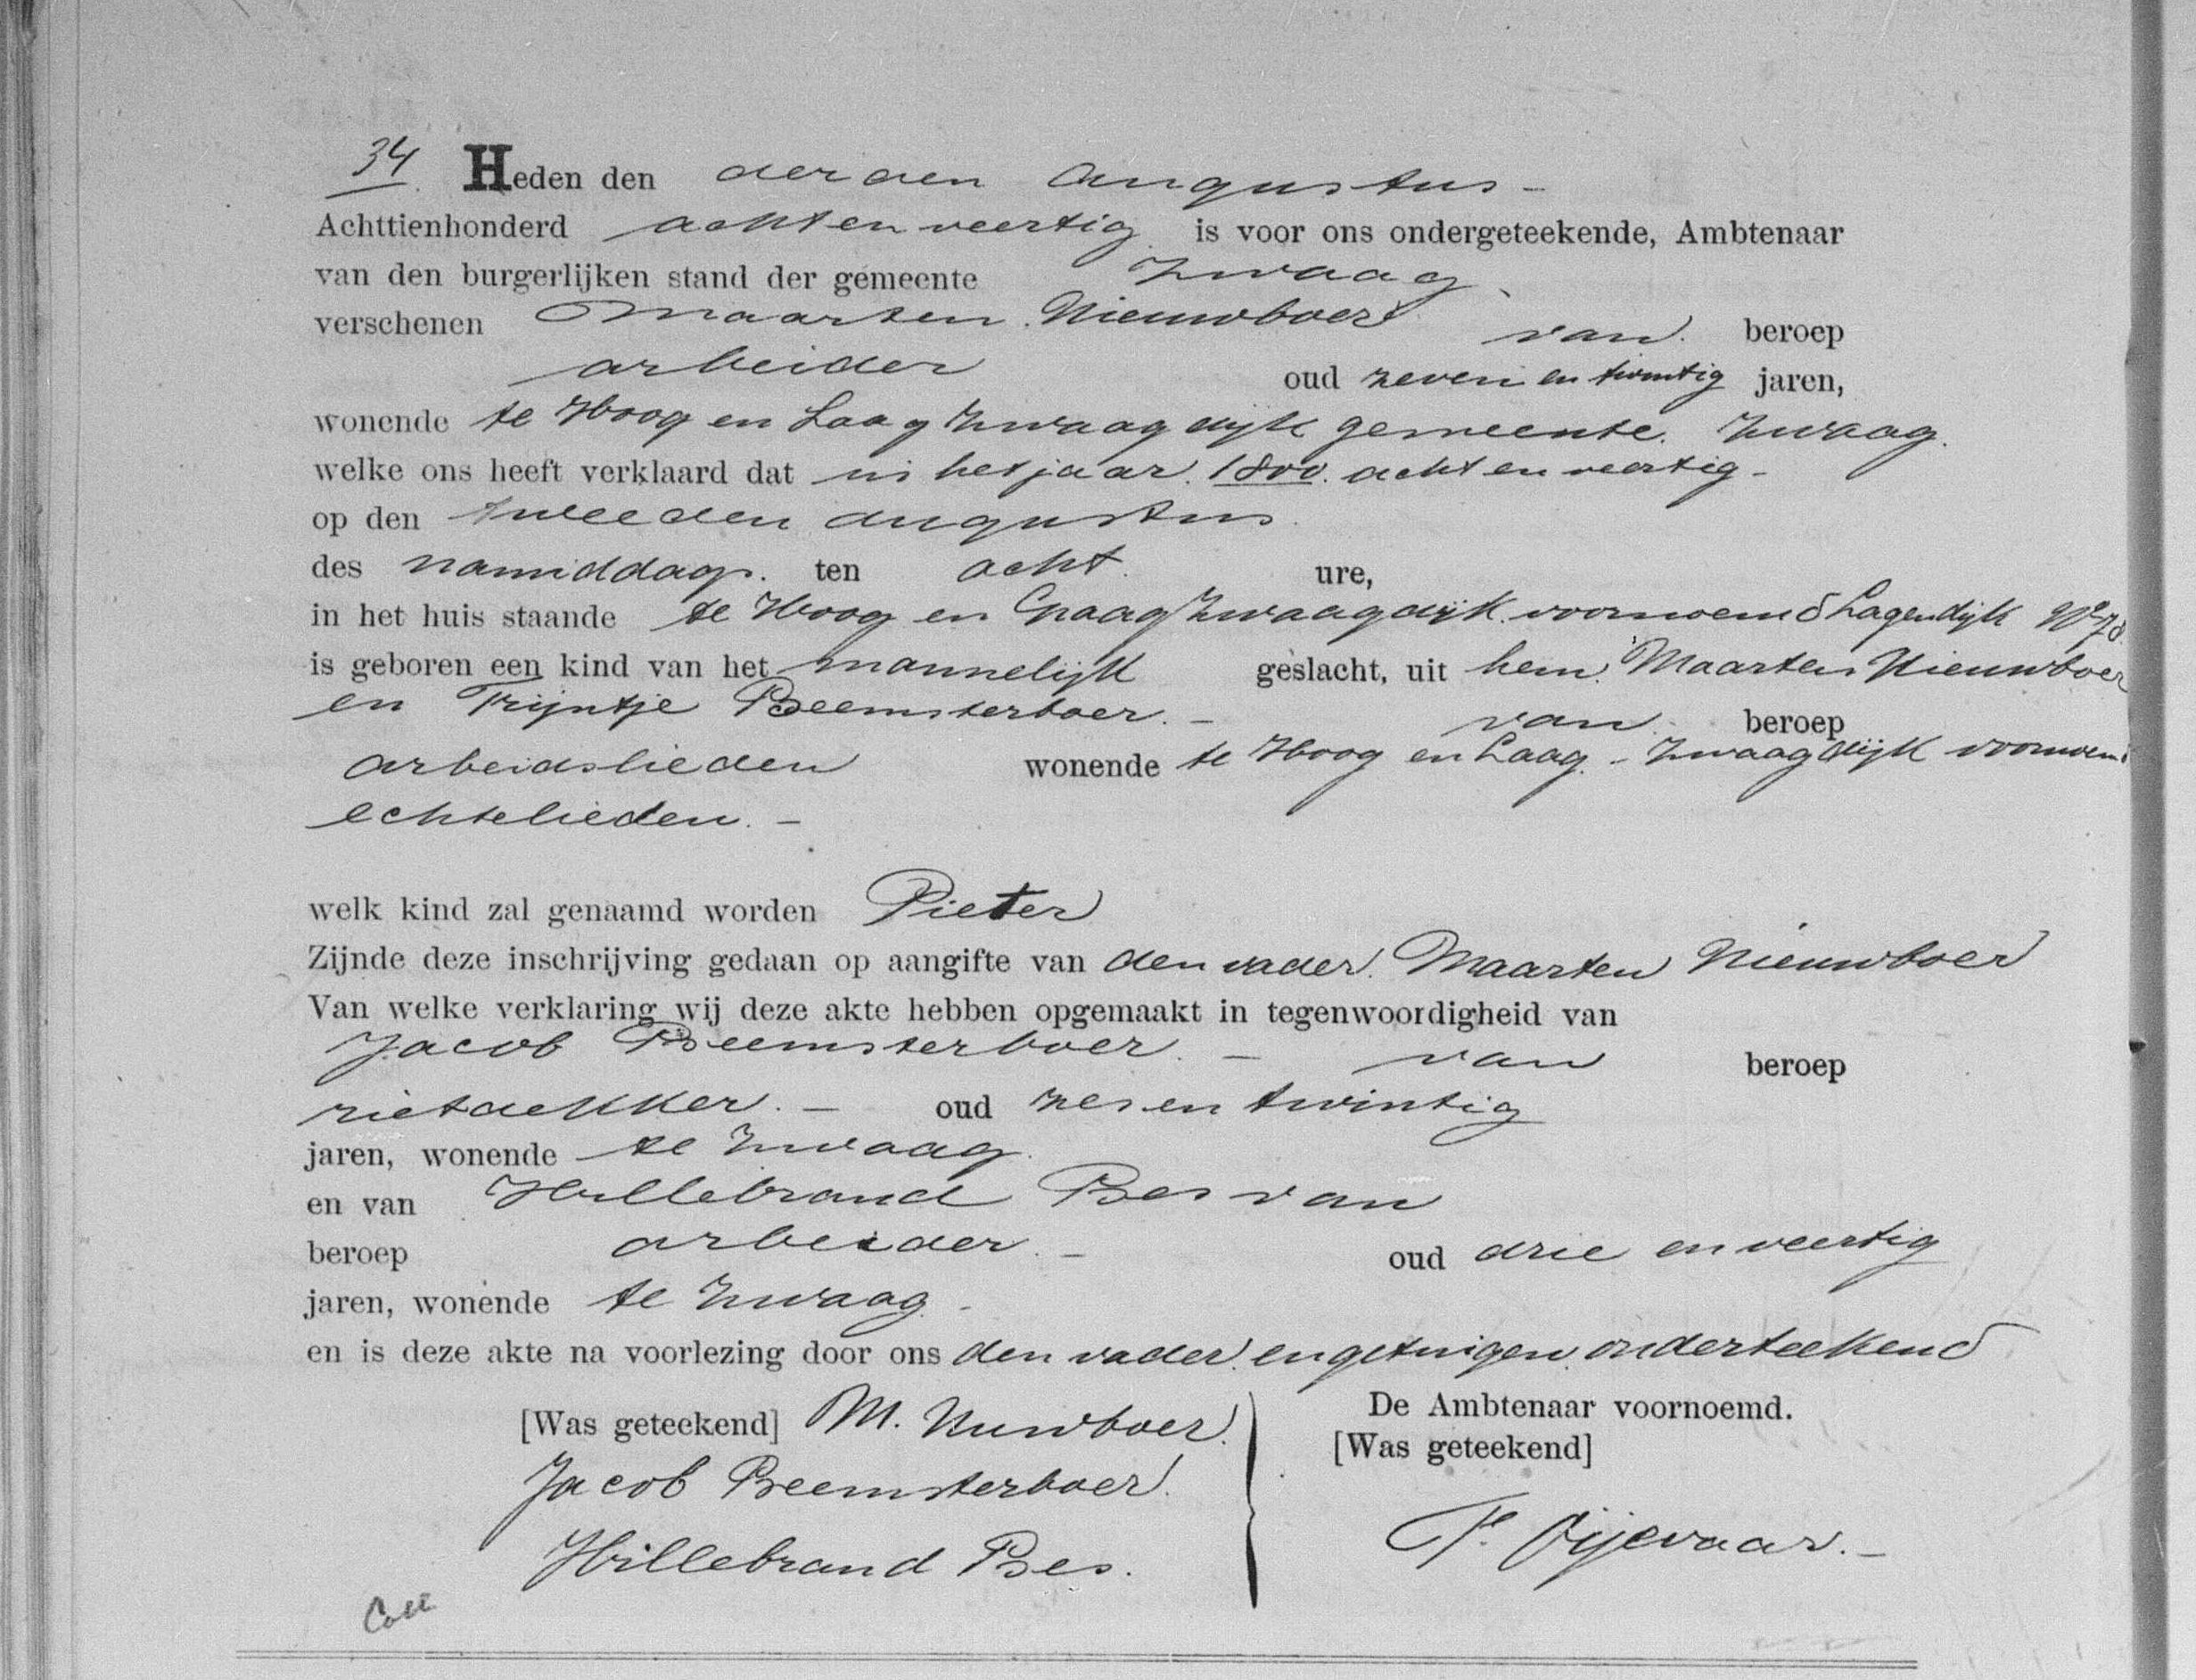 34. Heden den derden Augustus -
Achttienhonderd acht en veertig is voor ons ondergeteekende, Ambtenaar
van den burgerlijken stand der gemeente Zwaag
verschenen Maarten Nieuwboer van beroep
arbeider oud zeven en twintig jaren,
wonende te Hoog en Laag Zwaagdijk gemeente Zwaag.
welke ons heeft verklaard dat in het jaar 1800 acht en veertig -
op den tweeden Augustus
des namiddags ten acht ure,
in het huis staande te Hoog en Laag Zwaagdijk voornoemd Lagendijk No 78
is geboren een kind van het mannelijk geslacht, uit hem Maarten Nieuwboer
en Trijntje Beemsterboer. - van beroep
arbeidslieden wonende te Hoog en Laag - Zwaagdijk voornoemd
echtelieden. -
welk kind zal genaamd worden Pieter
Zijnde deze inschrijving gedaan op aangifte van den vader. Maarten Nieuwboer
Van welke verklaring wij deze akte hebben opgemaakt in tegenwoordigheid van
Jacob Beemsterboer. - van beroep
rietdekker. - oud zes en twintig
jaren, wonende te Zwaag.
en van Hillebrand Bes van
beroep arbeider. - oud drie en veertig
jaren, wonende te Zwaag -
en is deze akte na voorlezing door ons den vader en getuigen onderteekend
[Was geteekend] M. Nuwboer.
Jacob Beemsterboer.
Hillebrand Bes.
De Ambtenaar voornoemd.
[Was geteekend]
P. Vijevaar. -
Coll